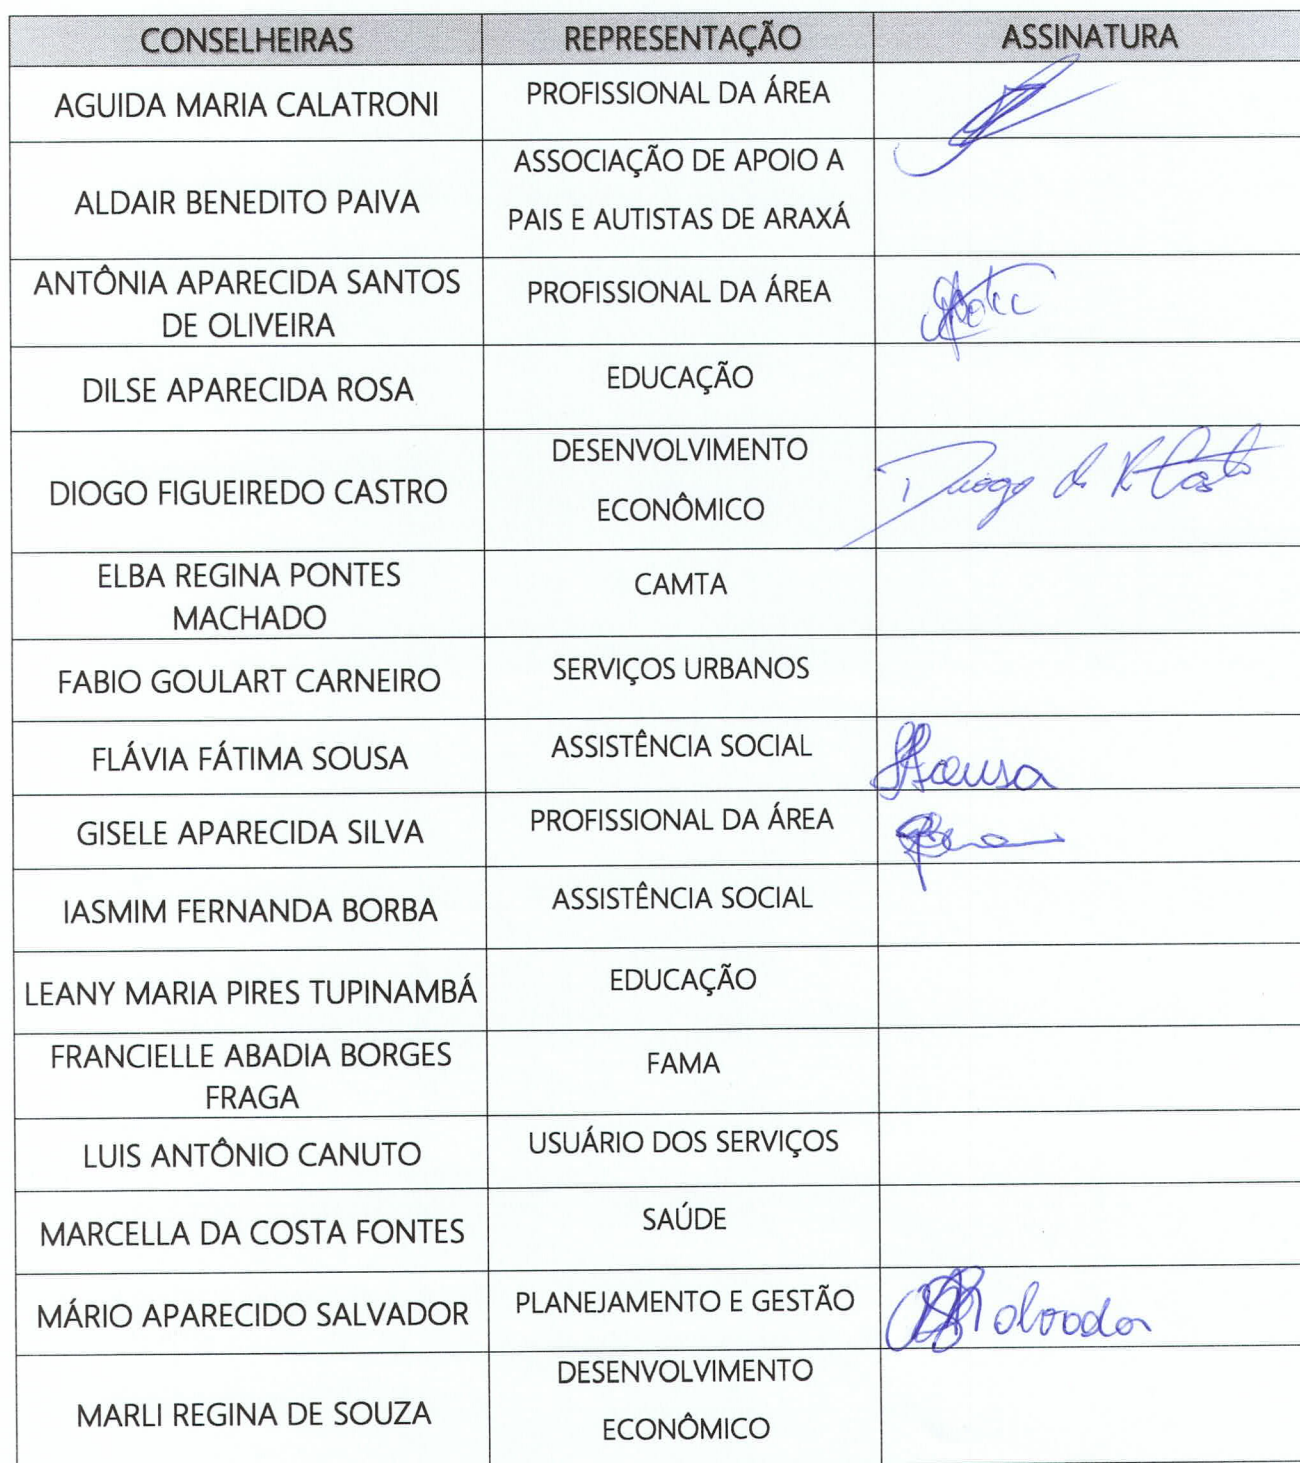 CONSELHEIRAS REPRESENTAÇÃO ASSINATURA
AGUIDA MARIA CALATRONI PROFISSIONAL DA ÁREA
ALDAIR BENEDITO PAIVA ASSOCIAÇÃO DE APOIO A
PAIS E AUTISTAS DE ARAXÁ
ANTÔNIA APARECIDA SANTOS
DE OLIVEIRA PROFISSIONAL DA ÁREA
DILSE APARECIDA ROSA EDUCAÇÃO
DIOGO FIGUEIREDO CASTRO DESENVOLVIMENTO
ECONÔMICO Diogo de Castro
ELBA REGINA PONTES
MACHADO CAMTA
FABIO GOULART CARNEIRO SERVIÇOS URBANOS
FLÁVIA FÁTIMA SOUSA ASSISTÊNCIA SOCIAL Sousa
GISELE APARECIDA SILVA PROFISSIONAL DA ÁREA
IASMIM FERNANDA BORBA ASSISTÊNCIA SOCIAL
LEANY MARIA PIRES TUPINAMBÁ EDUCAÇÃO
FRANCIELLE ABADIA BORGES
FRAGA FAMA
LUIS ANTÔNIO CANUTO USUÁRIO DOS SERVIÇOS
MARCELLA DA COSTA FONTES SAÚDE
MÁRIO APARECIDO SALVADOR PLANEJAMENTO E GESTÃO Salvador
MARLI REGINA DE SOUZA DESENVOLVIMENTO
ECONÔMICO